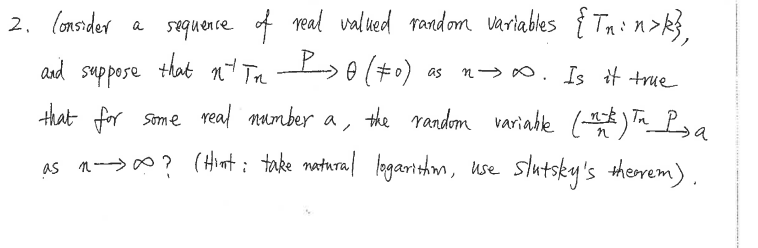 2. Consider a sequence of real valued random variables {Tn : n>k},
and suppose that n⁻¹ Tn —P→ θ (≠0) as n→∞. Is it true
that for some real number a, the random variable ((n-k)/n)^Tn —P→ a
as n→∞? (Hint: take natural logarithm, use Slutsky's theorem).